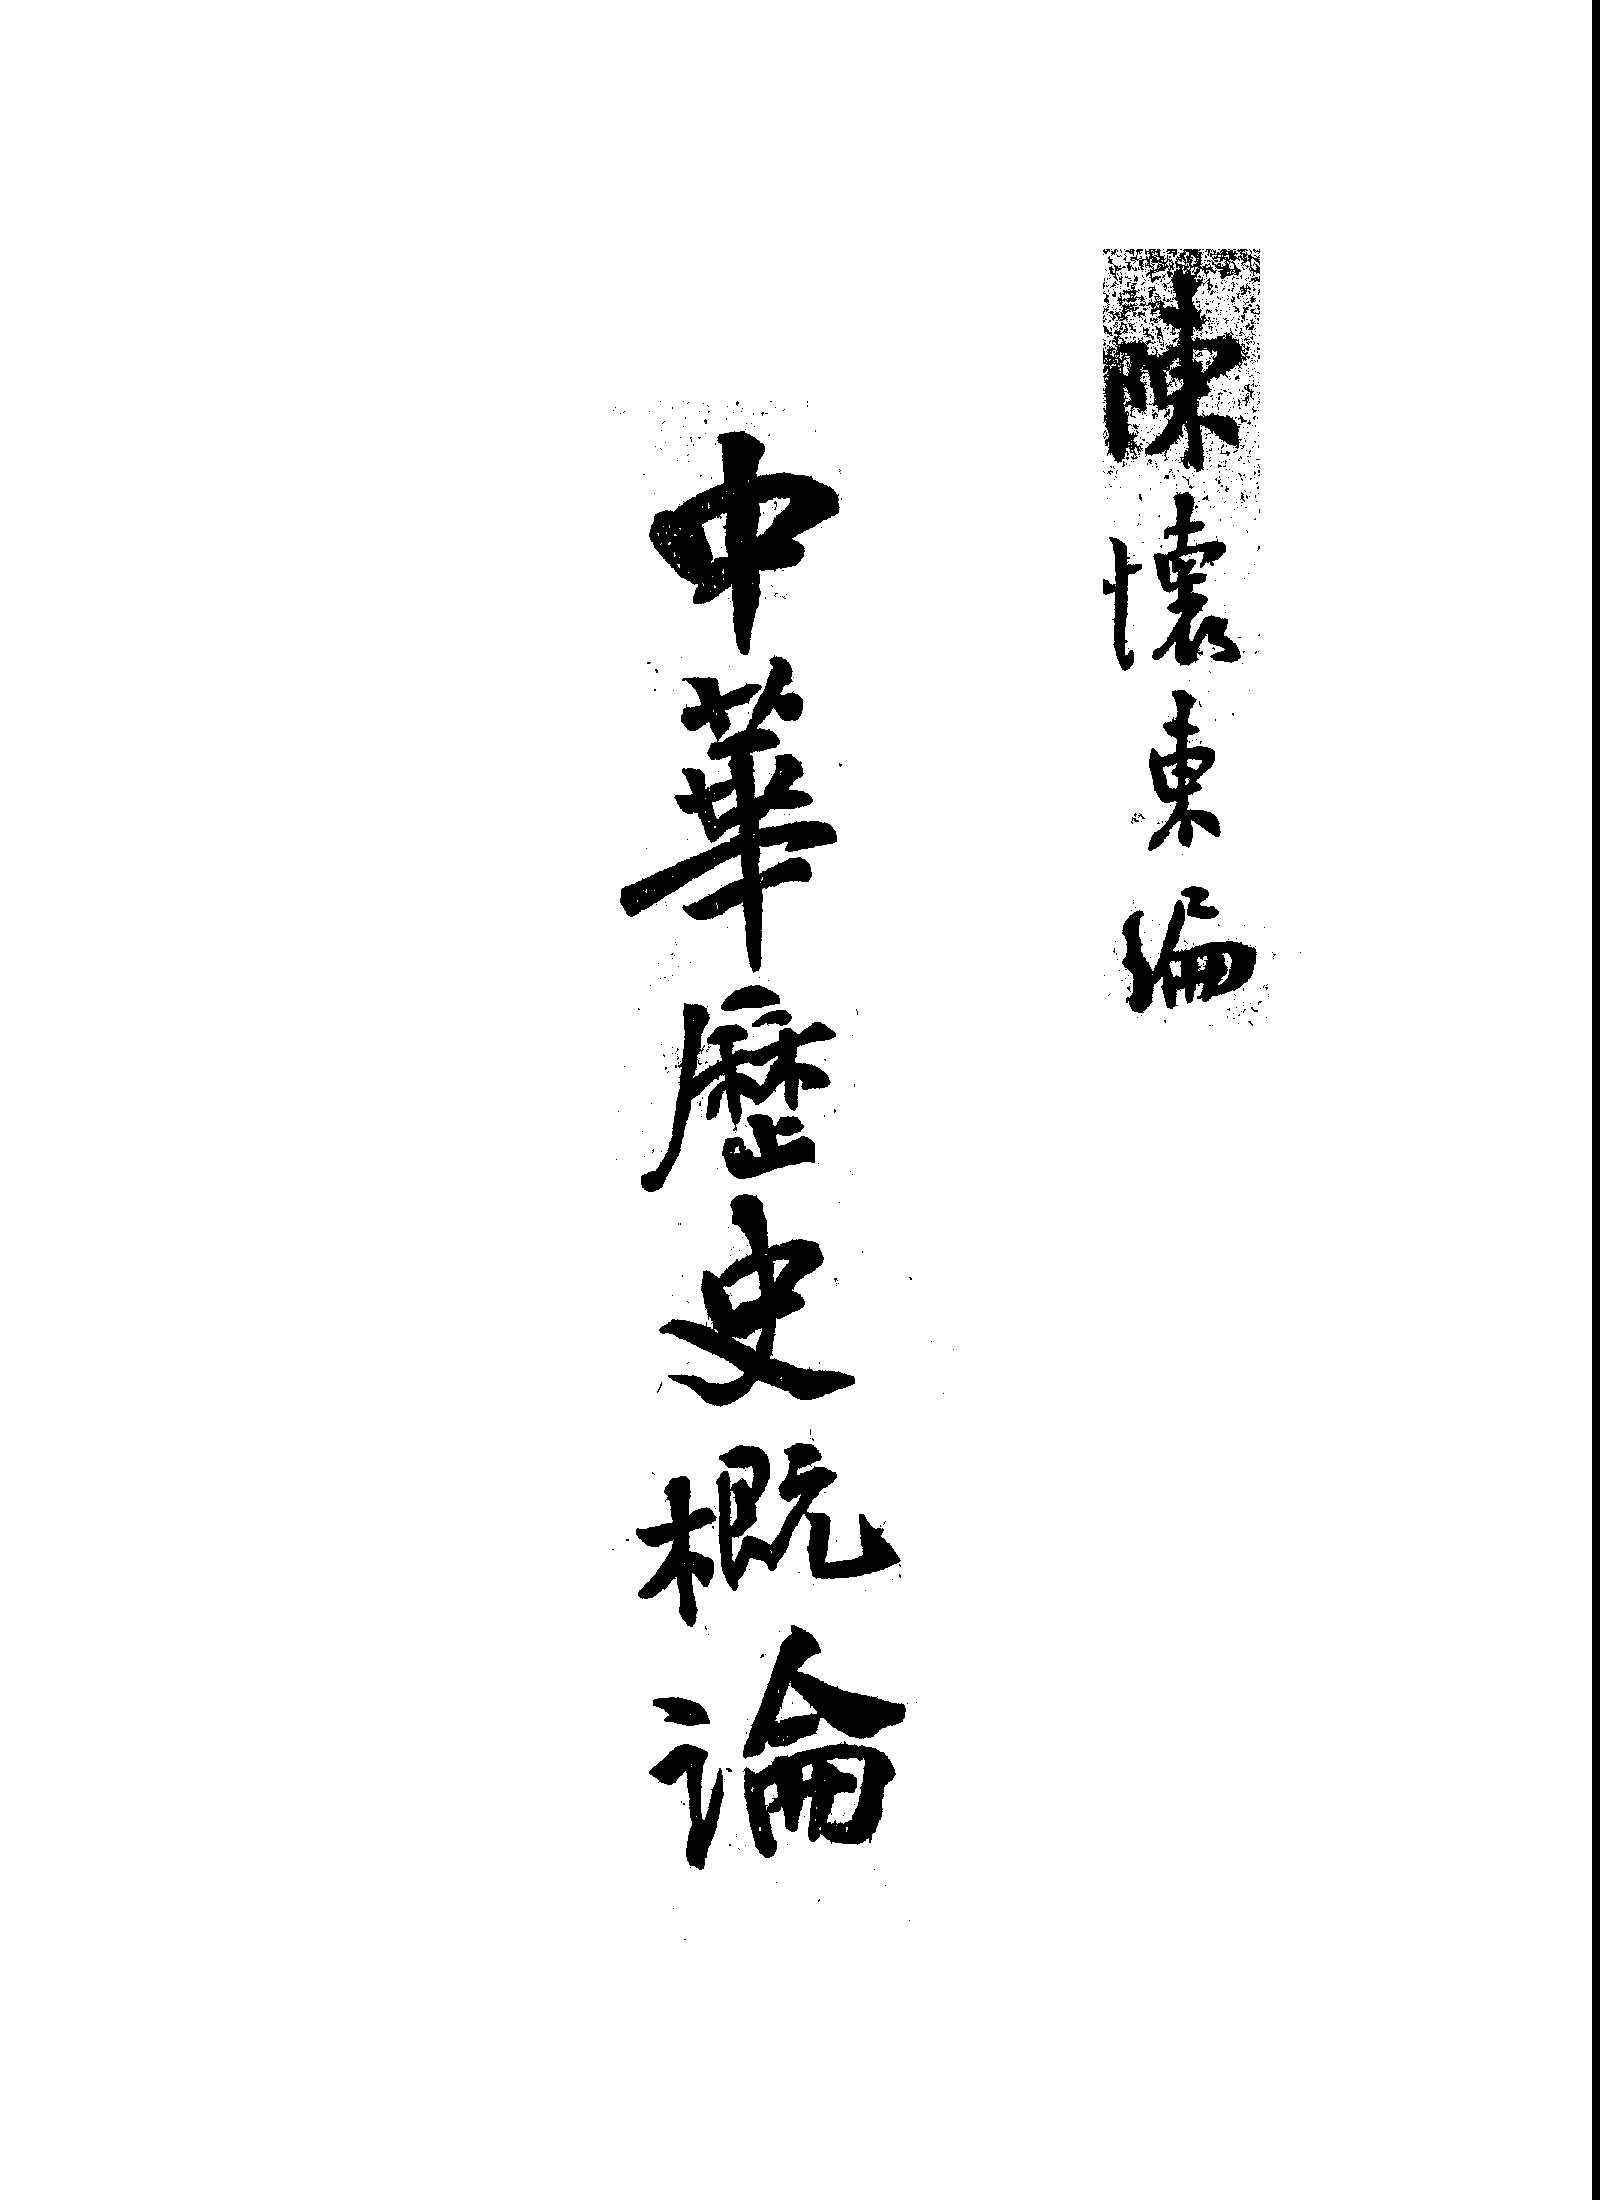 陳懷東編
中華歷史概論